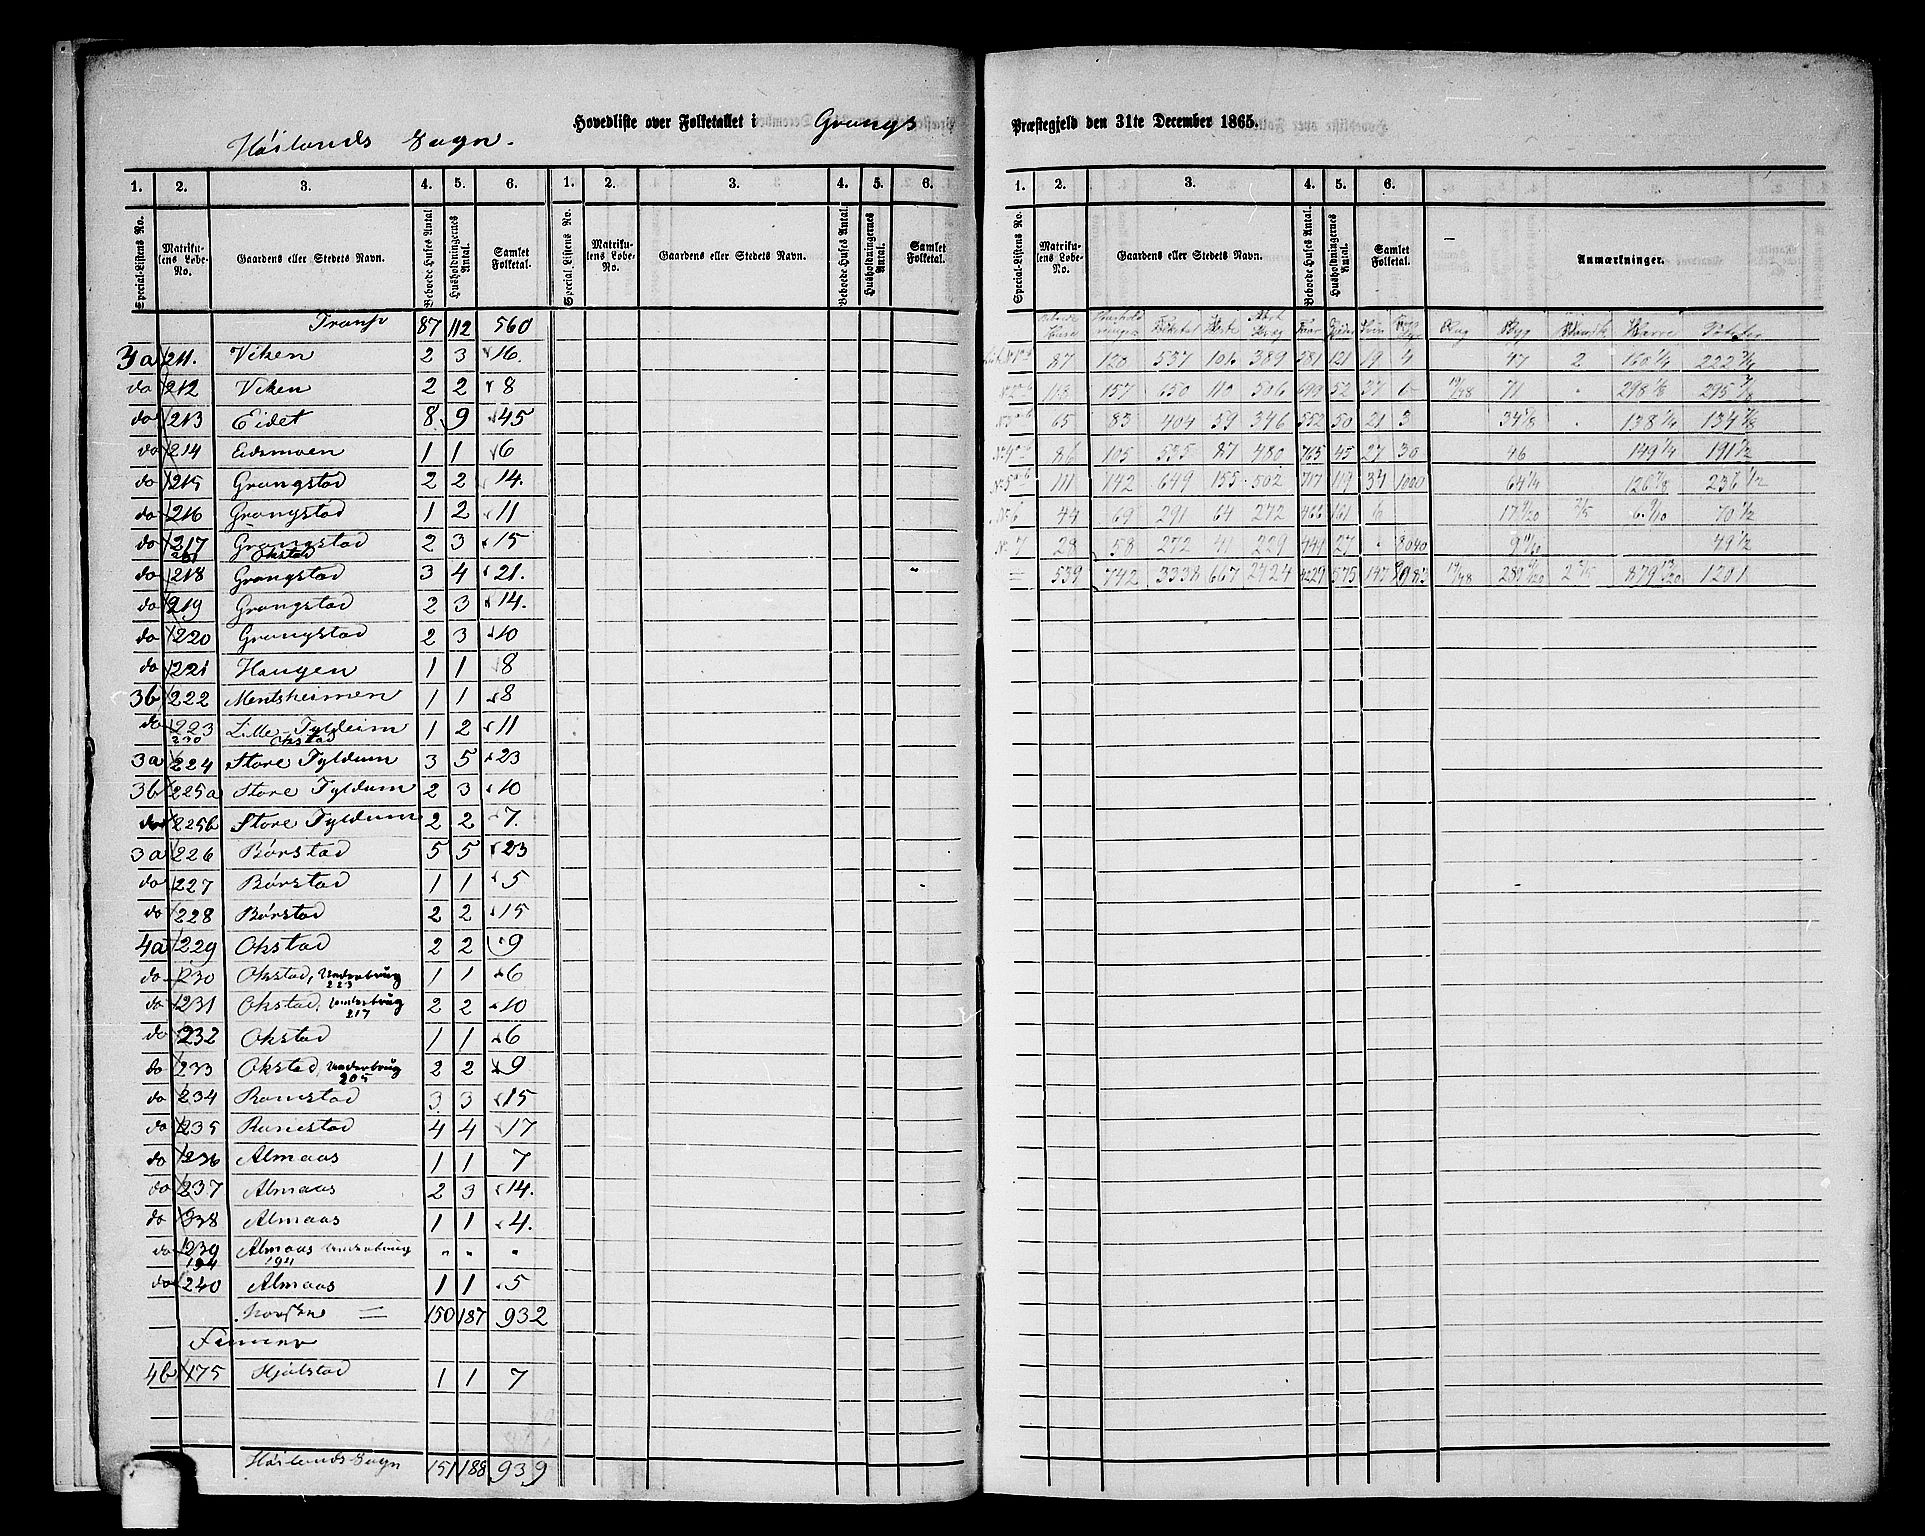 Hovedliste over Folketallet i Grongs Præstegjeld den 31te December 1865.
Høilands Sogn.
1. 2. 3. 4. 5. 6. 1. 2. 3. 4. 5. 6.
Special-Listens No. Matrikulens Løbe-No. Gaardens eller Stedets Navn. Beboede Huses Antal. Husholdningernes Antal. Samlet Folketal. Special Listens No. Matrikulens Løbe-No. Gaardens eller Stedets Navn. Beboede Huses Antal. Husholdningernes Antal. Samlet Folketal.
Transp 87 112 560
3a 211. Viken 2 3 16.
do 212 Viken 2 2 8
do 213 Eidet 8 9 45
do 214 Eidsmoen 1 1 6
do 215 Grongstad 2 2 14.
do 216 Grongstad 1 2 11
do 217 Grongstad 2 3 15
231 Okstad
do 218 Grongstad 3 4 21.
do 219 Grongstad 2 3 14.
do 220 Grongstad 2 3 10
do 221 Haugen 1 1 8
3b 222 Mentsheimen 1 1 8
do 223 Lille Tyldeim 1 2 11
230 Okstad
3a 224 Store Tyldum 3 5 23
3b 225a Store Tyldum 2 3 10
do 225b Store Tyldum 2 2 7.
3a 226 Børstad 5 5 23
do 227 Børstad 1 1 5
do 228 Børstad 2 2 15
4a 229 Okstad 2 2 9
do 230 Okstad, Underbrug 1 1 6
223
do 231 Okstad, Underbrug 2 2 10
217
do 232 Okstad 1 1 6
do 233 Okstad, Underbrug 2 2 9
205
do 234 Romstad 3 3 15
do 235 Romstad 4 4 17
do 236 Almaas 1 1 7
do 237 Almaas 2 3 14.
do 238 Almaas 1 1 4.
do 239 Almaas Underbrug " " "
194 194
do 240 Almaas 1 1 5
Norske = 150 187 932
Finner
4b 175 Hjølstad 1 1 7
Høilands Sogn 151 188 939
1. 2. 3. 4. 5. 6.
Special-Listens No. Matrikulens Løbe-No. Gaardens eller Stedets Navn. Beboede Huses Antal. Husholdningernes Antal. Samlet Folketal. Anmærkninger.
Folketal Heste Faar Gjeder Svin Rug Byg Havre Poteter
87 120 537 106 389 581 121 19 4 47 2 160 1/4 222 3/4
113 157 650 110 506 699 52 37 19/48 71 " 298 1/8 295 7/8
No 3 65 83 404 59 346 552 50 21 3 34 1/8 " 138 1/4 134 7/8
No 4 86 105 535 87 480 765 45 27 30 46 149 1/4 191 1/2
No 5 111 142 649 155 502 717 119 34 64 1/4 126 7/8 236 1/2
No 6 49 69 291 64 272 466 161 6 17 9/20 2/5 6 9/10 70 1/2
No 7 28 58 272 41 229 441 27 " 49 1/2
= 539 742 3338 667 2724 4229 575 147 19/48 2 2/5 879 13/20 1201